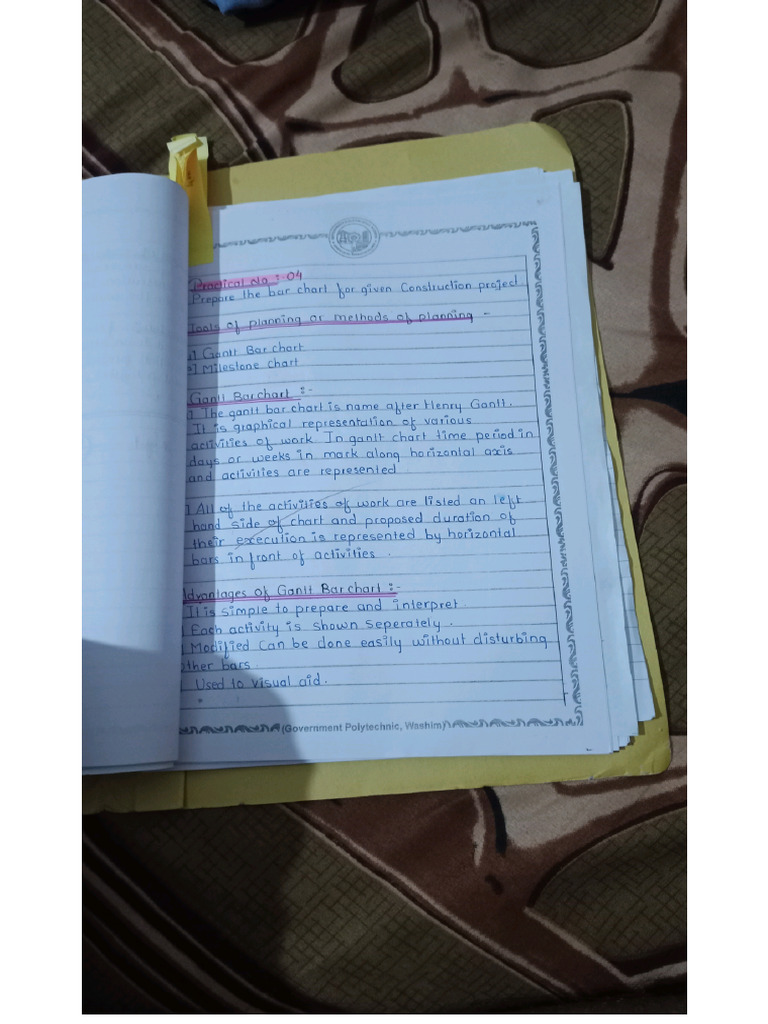 Practical No :- 04
Prepare the bar chart for given Construction project
Tools of planning or methods of planning -
1] Gantt Bar chart
2] Milestone chart
Gantt Barchart :-
] The gantt bar chart is name after Henry Gantt.
It is graphical representation of various
activities of work In gantt chart time period in
days or weeks in mark along horizontal axis
and activities are represented
] All of the activities of work are listed an left
hand side of chart and proposed duration of
their execution is represented by horizontal
bars in front of activities .
Advantages of Gantt Barchart :-
It is simple to prepare and interpret.
Each activity is shown seperately .
Modified can be done easily without disturbing
other bars.
Used to visual aid.
(Government Polytechnic, Washim)